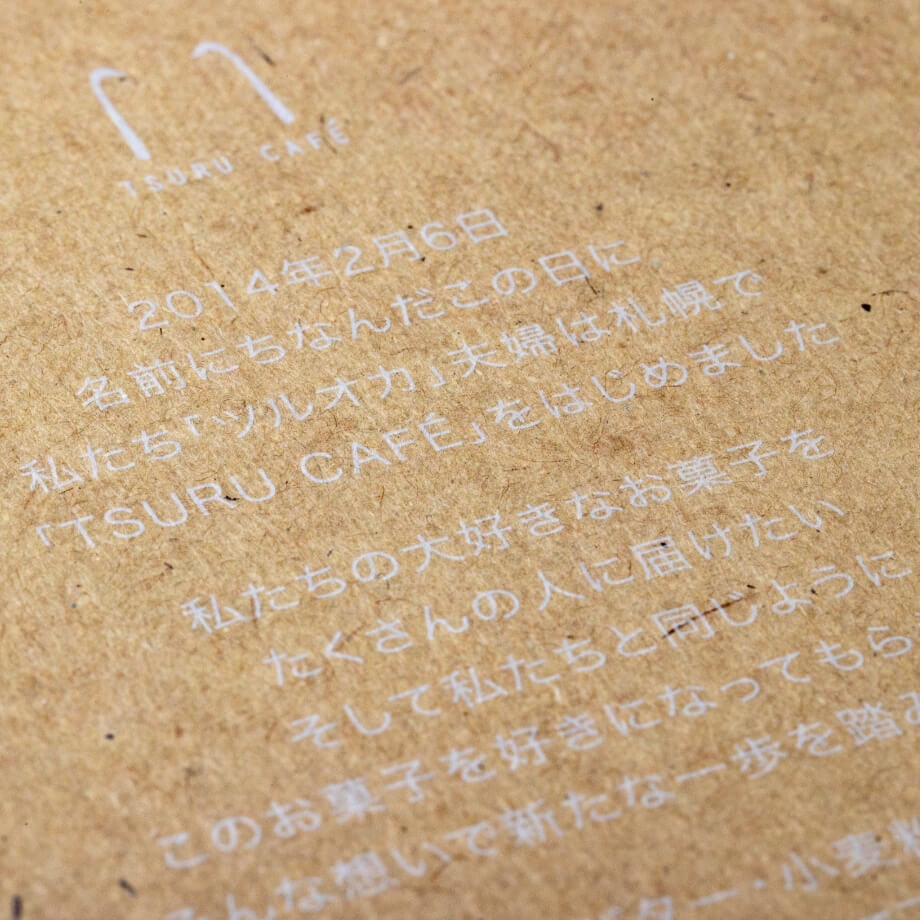 TSURU CAFÉ
2014年2月6日
名前にちなんだこの日に
私たち「ツルオカ」夫婦は札幌で
「TSURU CAFÉ」をはじめました
私たちの大好きなお菓子を
たくさんの人に届けたい
そして私たちと同じように
このお菓子を好きになってもら
こんな想いで新たな一歩を踏み
バター・小麦粉